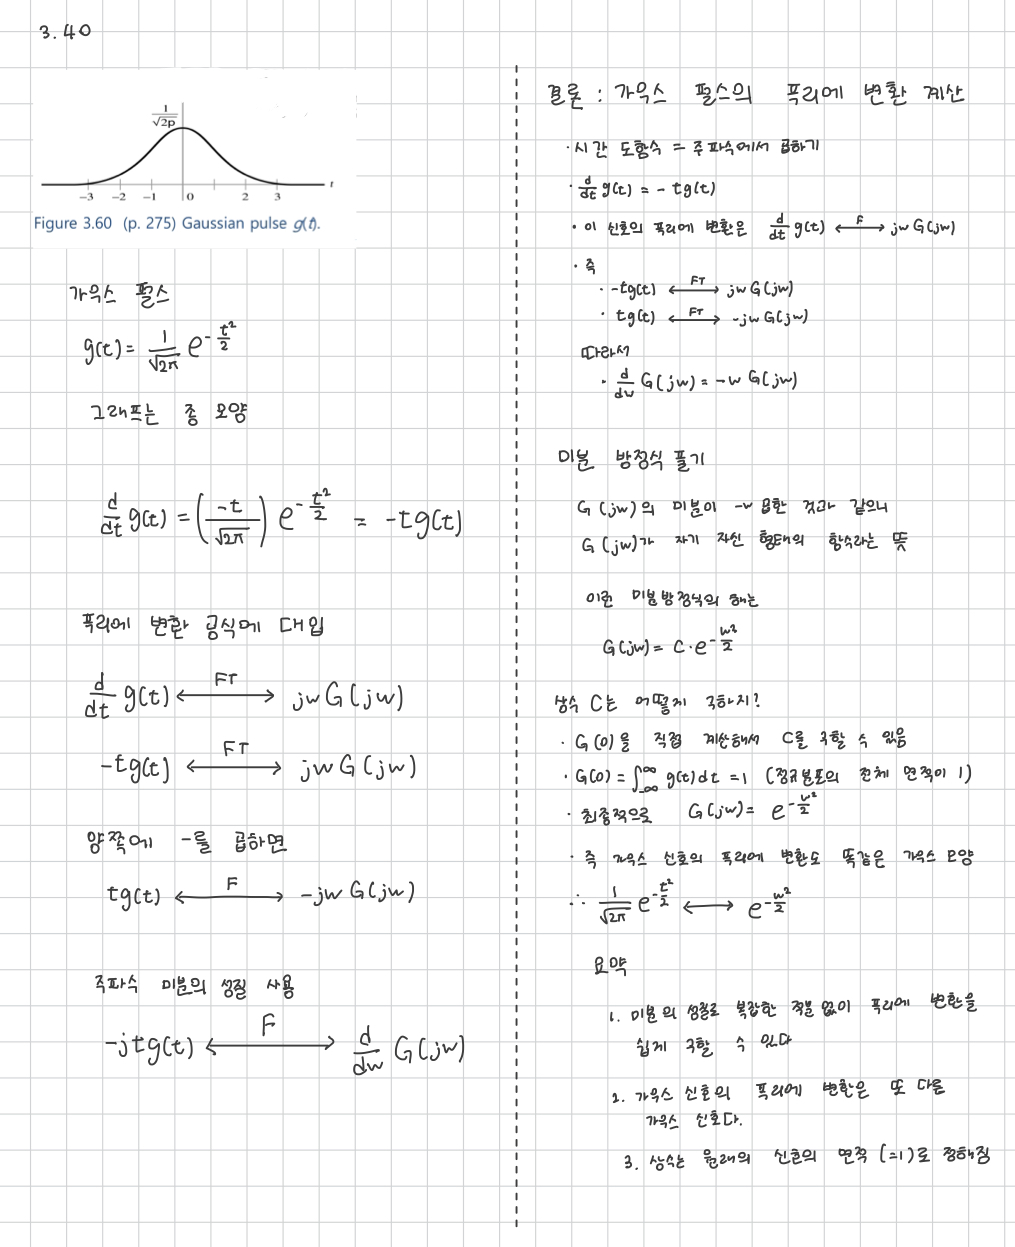 3.40
1/√2p
-3 -2 -1 0 2 3 t
Figure 3.60 (p. 275) Gaussian pulse g(t).
가우스 펄스
g(t) = 1/√2π e^-t²/2
그래프는 종 모양
d/dt g(t) = (-t/√2π) e^-t²/2 = -tg(t)
푸리에 변환 공식에 대입
d/dt g(t) ←FT→ jw G(jw)
-tg(t) ←FT→ jw G(jw)
양쪽에 -를 곱하면
tg(t) ←F→ -jw G(jw)
주파수 미분의 성질 사용
-jtg(t) ←F→ d/dw G(jw)
결론 : 가우스 펄스의 푸리에 변환 계산
· 시간 도함수 = 주파수에서 곱하기
· d/dt g(t) = - tg(t)
· 이 신호의 푸리에 변환은 d/dt g(t) ←F→ jw G(jw)
· 즉
· -tg(t) ←FT→ jw G(jw)
· tg(t) ←FT→ -jw G(jw)
따라서
· d/dw G(jw) = -w G(jw)
미분 방정식 풀기
G(jw)의 미분이 -w 곱한 것과 같으니
G(jw)가 자기 자신 형태의 함수라는 뜻
이런 미분방정식의 해는
G(jw) = C·e^-w²/2
상수 C는 어떻게 구하지?
· G(0)을 직접 계산해서 C를 구할 수 있음
· G(0) = ∫-∞^∞ g(t)dt = 1 (정규분포의 전체 면적이 1)
· 최종적으로 G(jw) = e^-w²/2
· 즉 가우스 신호의 푸리에 변환도 똑같은 가우스 모양
∴ 1/√2π e^-t²/2 ←→ e^-w²/2
요약
1. 미분의 성질로 복잡한 적분 없이 푸리에 변환을
쉽게 구할 수 있다
2. 가우스 신호의 푸리에 변환은 또 다른
가우스 신호다.
3. 상수는 원래의 신호의 면적 (=1)로 정해짐